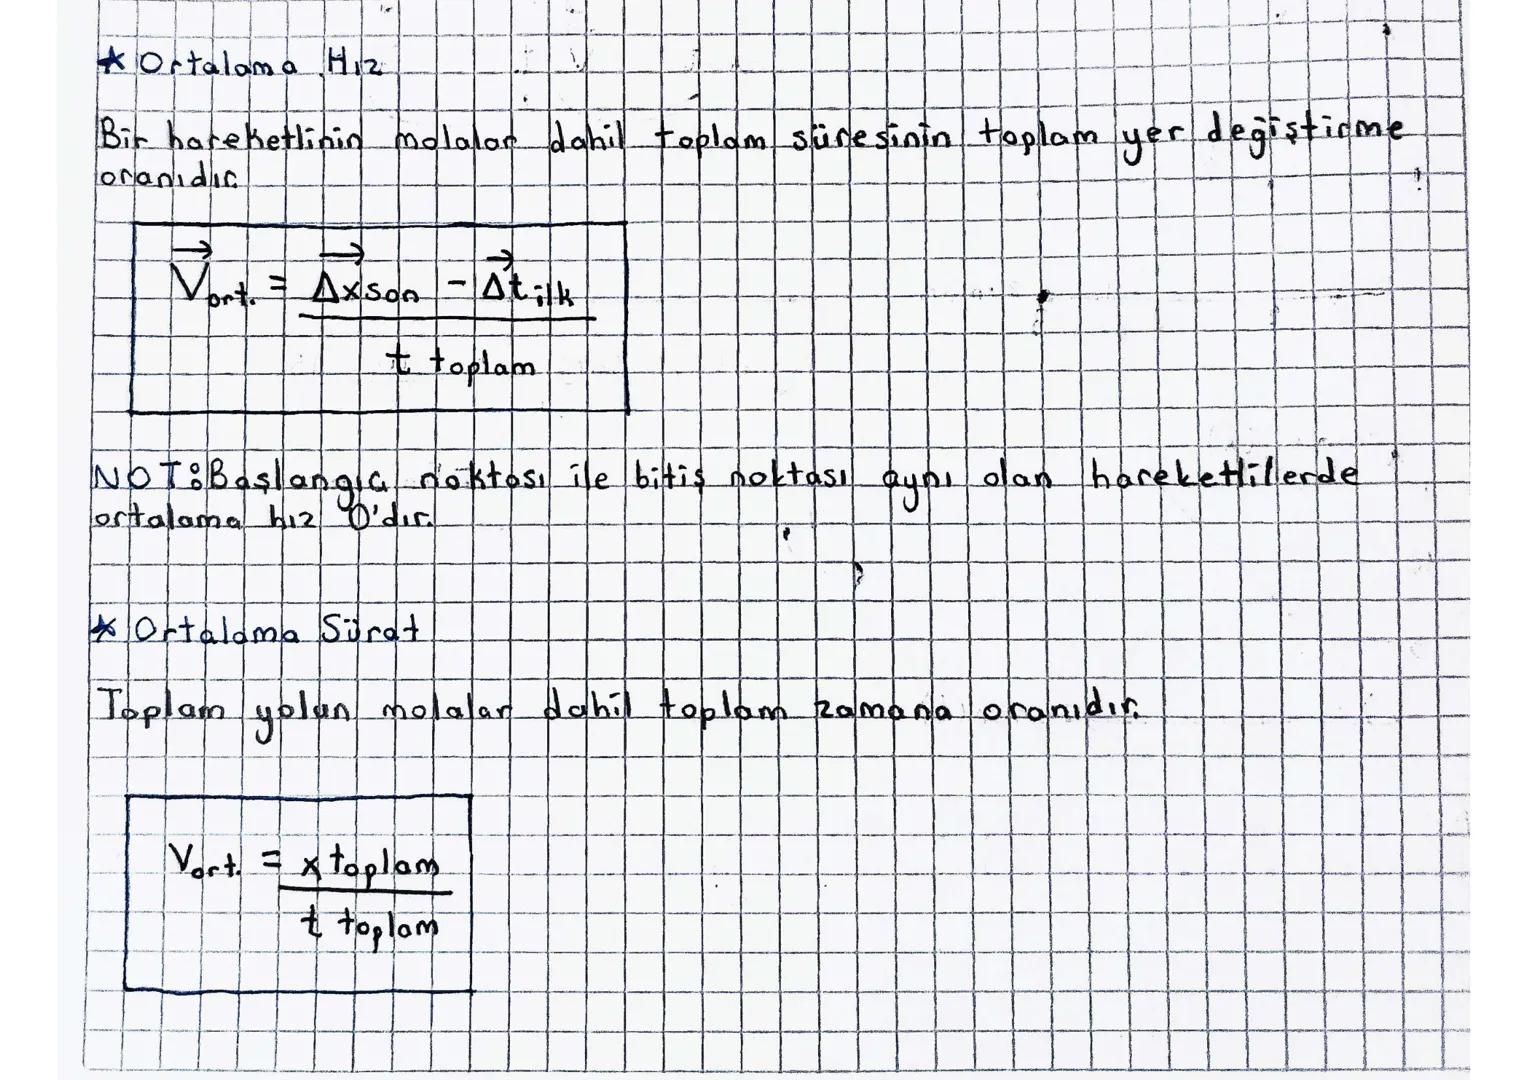 * Ortalama Hız
Bir hareketlinin molalar dahil toplam süresinin toplam yer değiştirme
oranıdır.
V ort. = Δxson - Δt ilk
t toplam
NOT: Başlangıç noktası ile bitiş noktası aynı olan hareketlilerde
ortalama hız 0'dır.
* Ortalama Sürat
Toplam yolun molalar dahil toplam zamana oranıdır.
Vort. = x toplam
t toplam